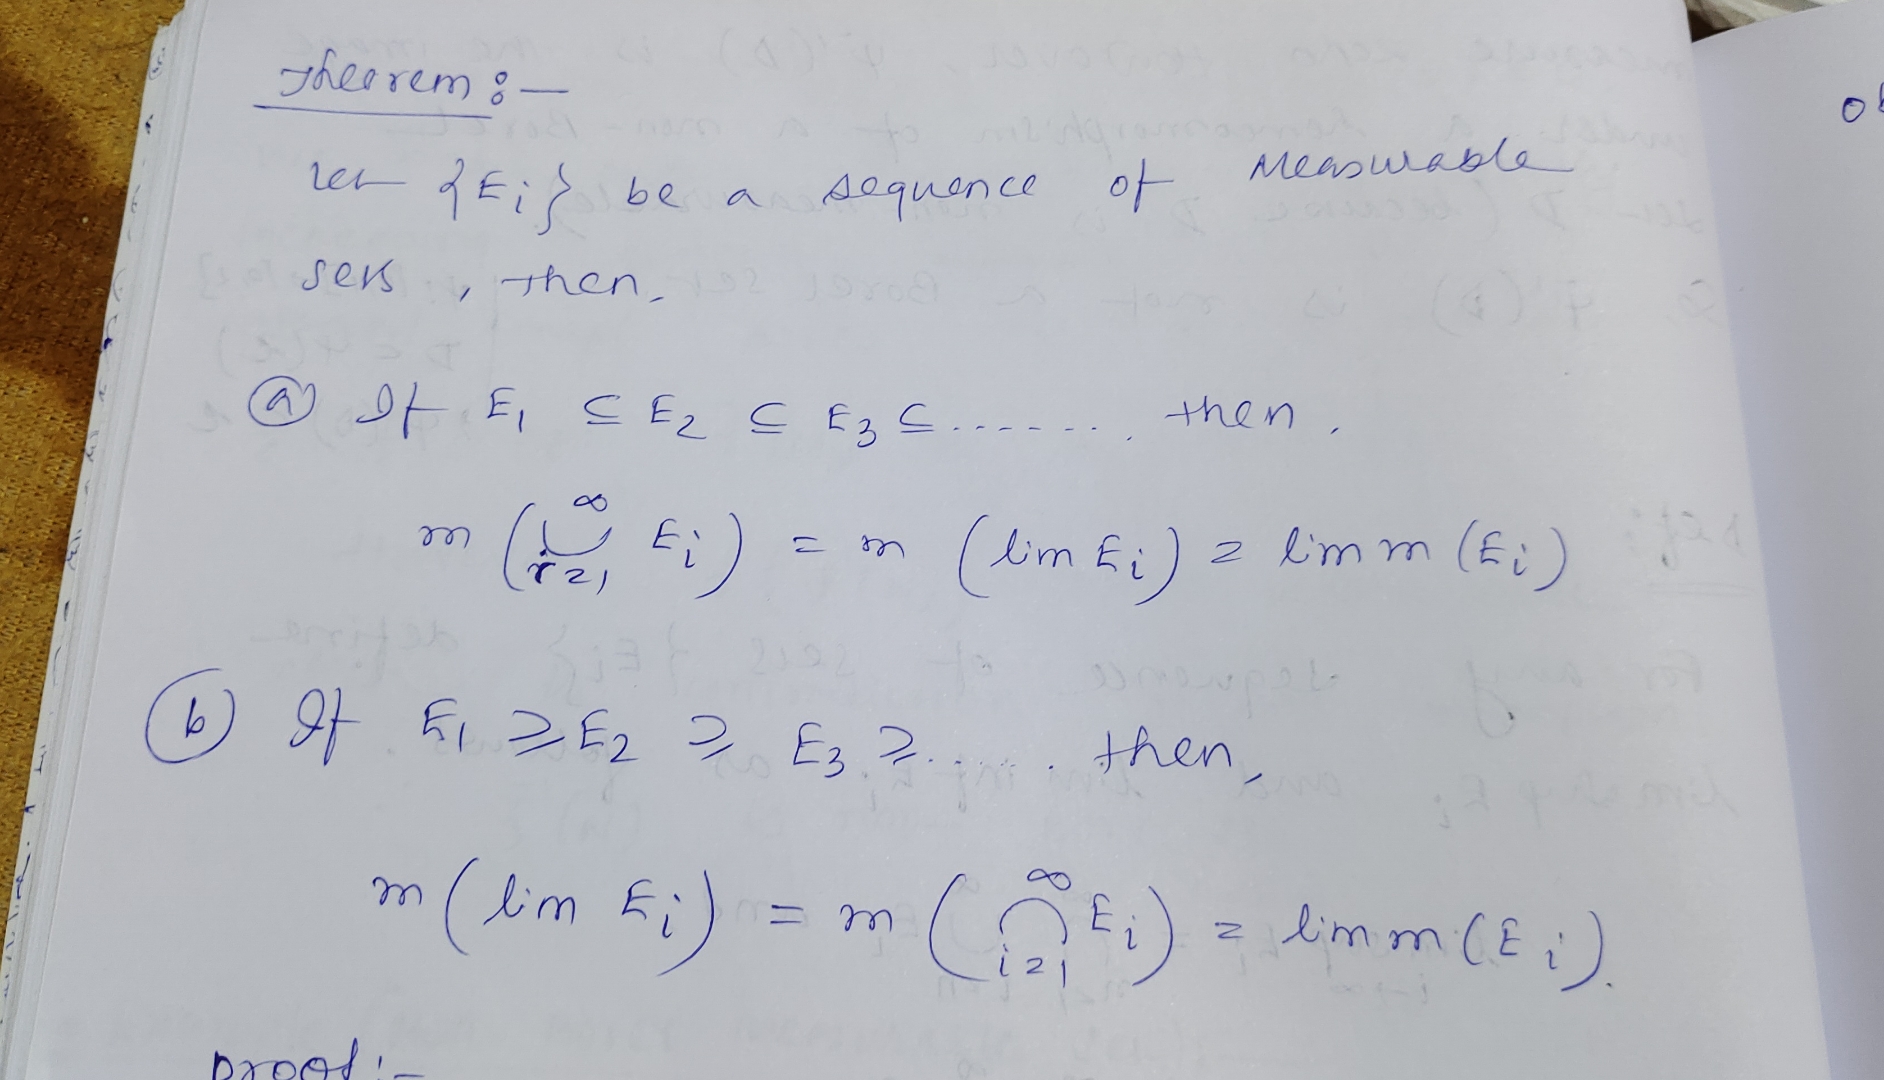 Theorem :-
Let {Ei} be a sequence of Measurable
sets, then,
(a) If E1 ⊆ E2 ⊆ E3 ⊆ ......., then,
m (∞⋃i=1 Ei) = m (lim Ei) = lim m (Ei)
(b) If E1 ⊇ E2 ⊇ E3 ⊇ ...... then,
m (lim Ei) = m (∞⋂i=1 Ei) = lim m (Ei).
proof :-